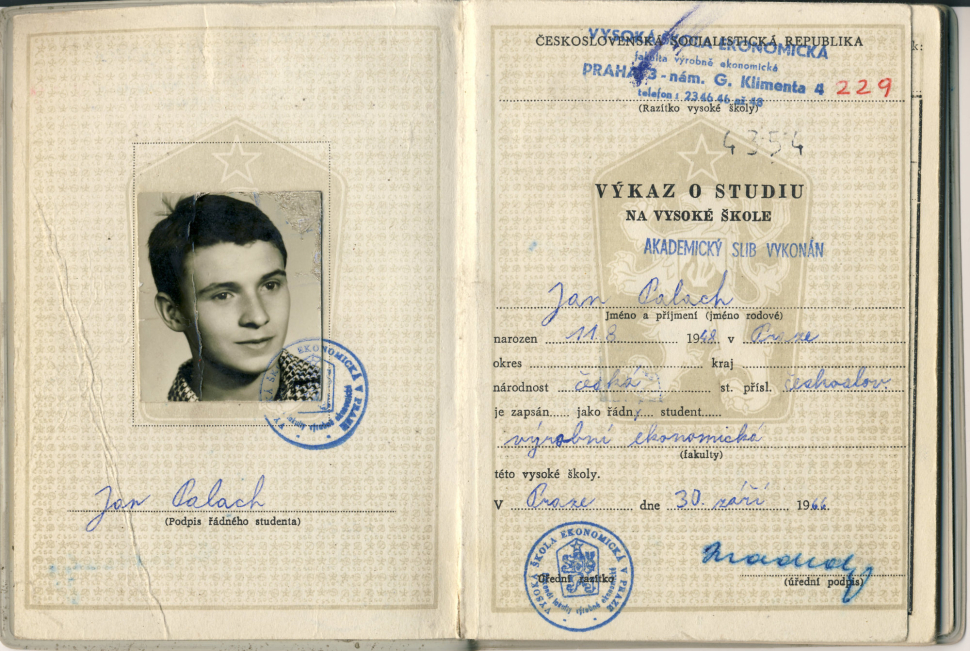 Jan Palach
(Podpis řádného studenta)
VYSOKÁ ŠKOLA EKONOMICKÁ V PRAZE
ČESKOSLOVENSKÁ SOCIALISTICKÁ REPUBLIKA
VYSOKÁ ŠKOLA EKONOMICKÁ
fakulta výrobně ekonomická
PRAHA 3 - nám. G. Klimenta 4
229
telefon: 2346 46 až 48
(Razítko vysoké školy)
4354
VÝKAZ O STUDIU
NA VYSOKÉ ŠKOLE
AKADEMICKÝ SLIB VYKONÁN
Jan Palach
Jméno a příjmení (jméno rodové)
narozen 11.8. 1948 v Praze
okres kraj
národnost česká st. přísl. českoslov.
je zapsán jako řádný student
výrobní ekonomická
(fakulty)
této vysoké školy.
V Praze dne 30. září 1966
VYSOKÁ ŠKOLA EKONOMICKÁ V PRAZE
Úřední razítko
(úřední podpis)